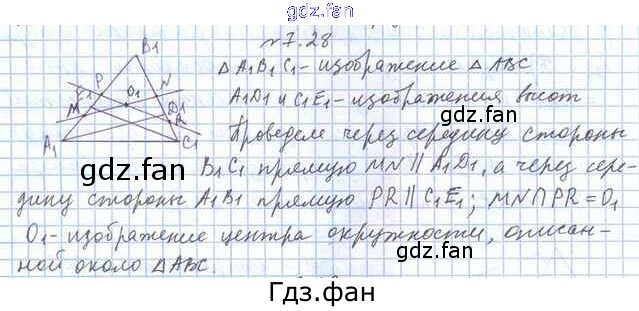 gdz.fan
№7.28
B1
P
N
E1
O1
M
D1
R
A1
C1
△A1B1C1 - изображение △ABC
A1D1 и C1E1 - изображения высот
gdz.fan
Проведем через середину стороны
gdz.fan
B1C1 прямую MN || A1D1, а через сере-
дину стороны A1B1 прямую PR || C1E1; MN∩PR = O1
O1 - изображение центра окружности, описан-
ной около △ABC.
gdz.fan
Гдз.фан